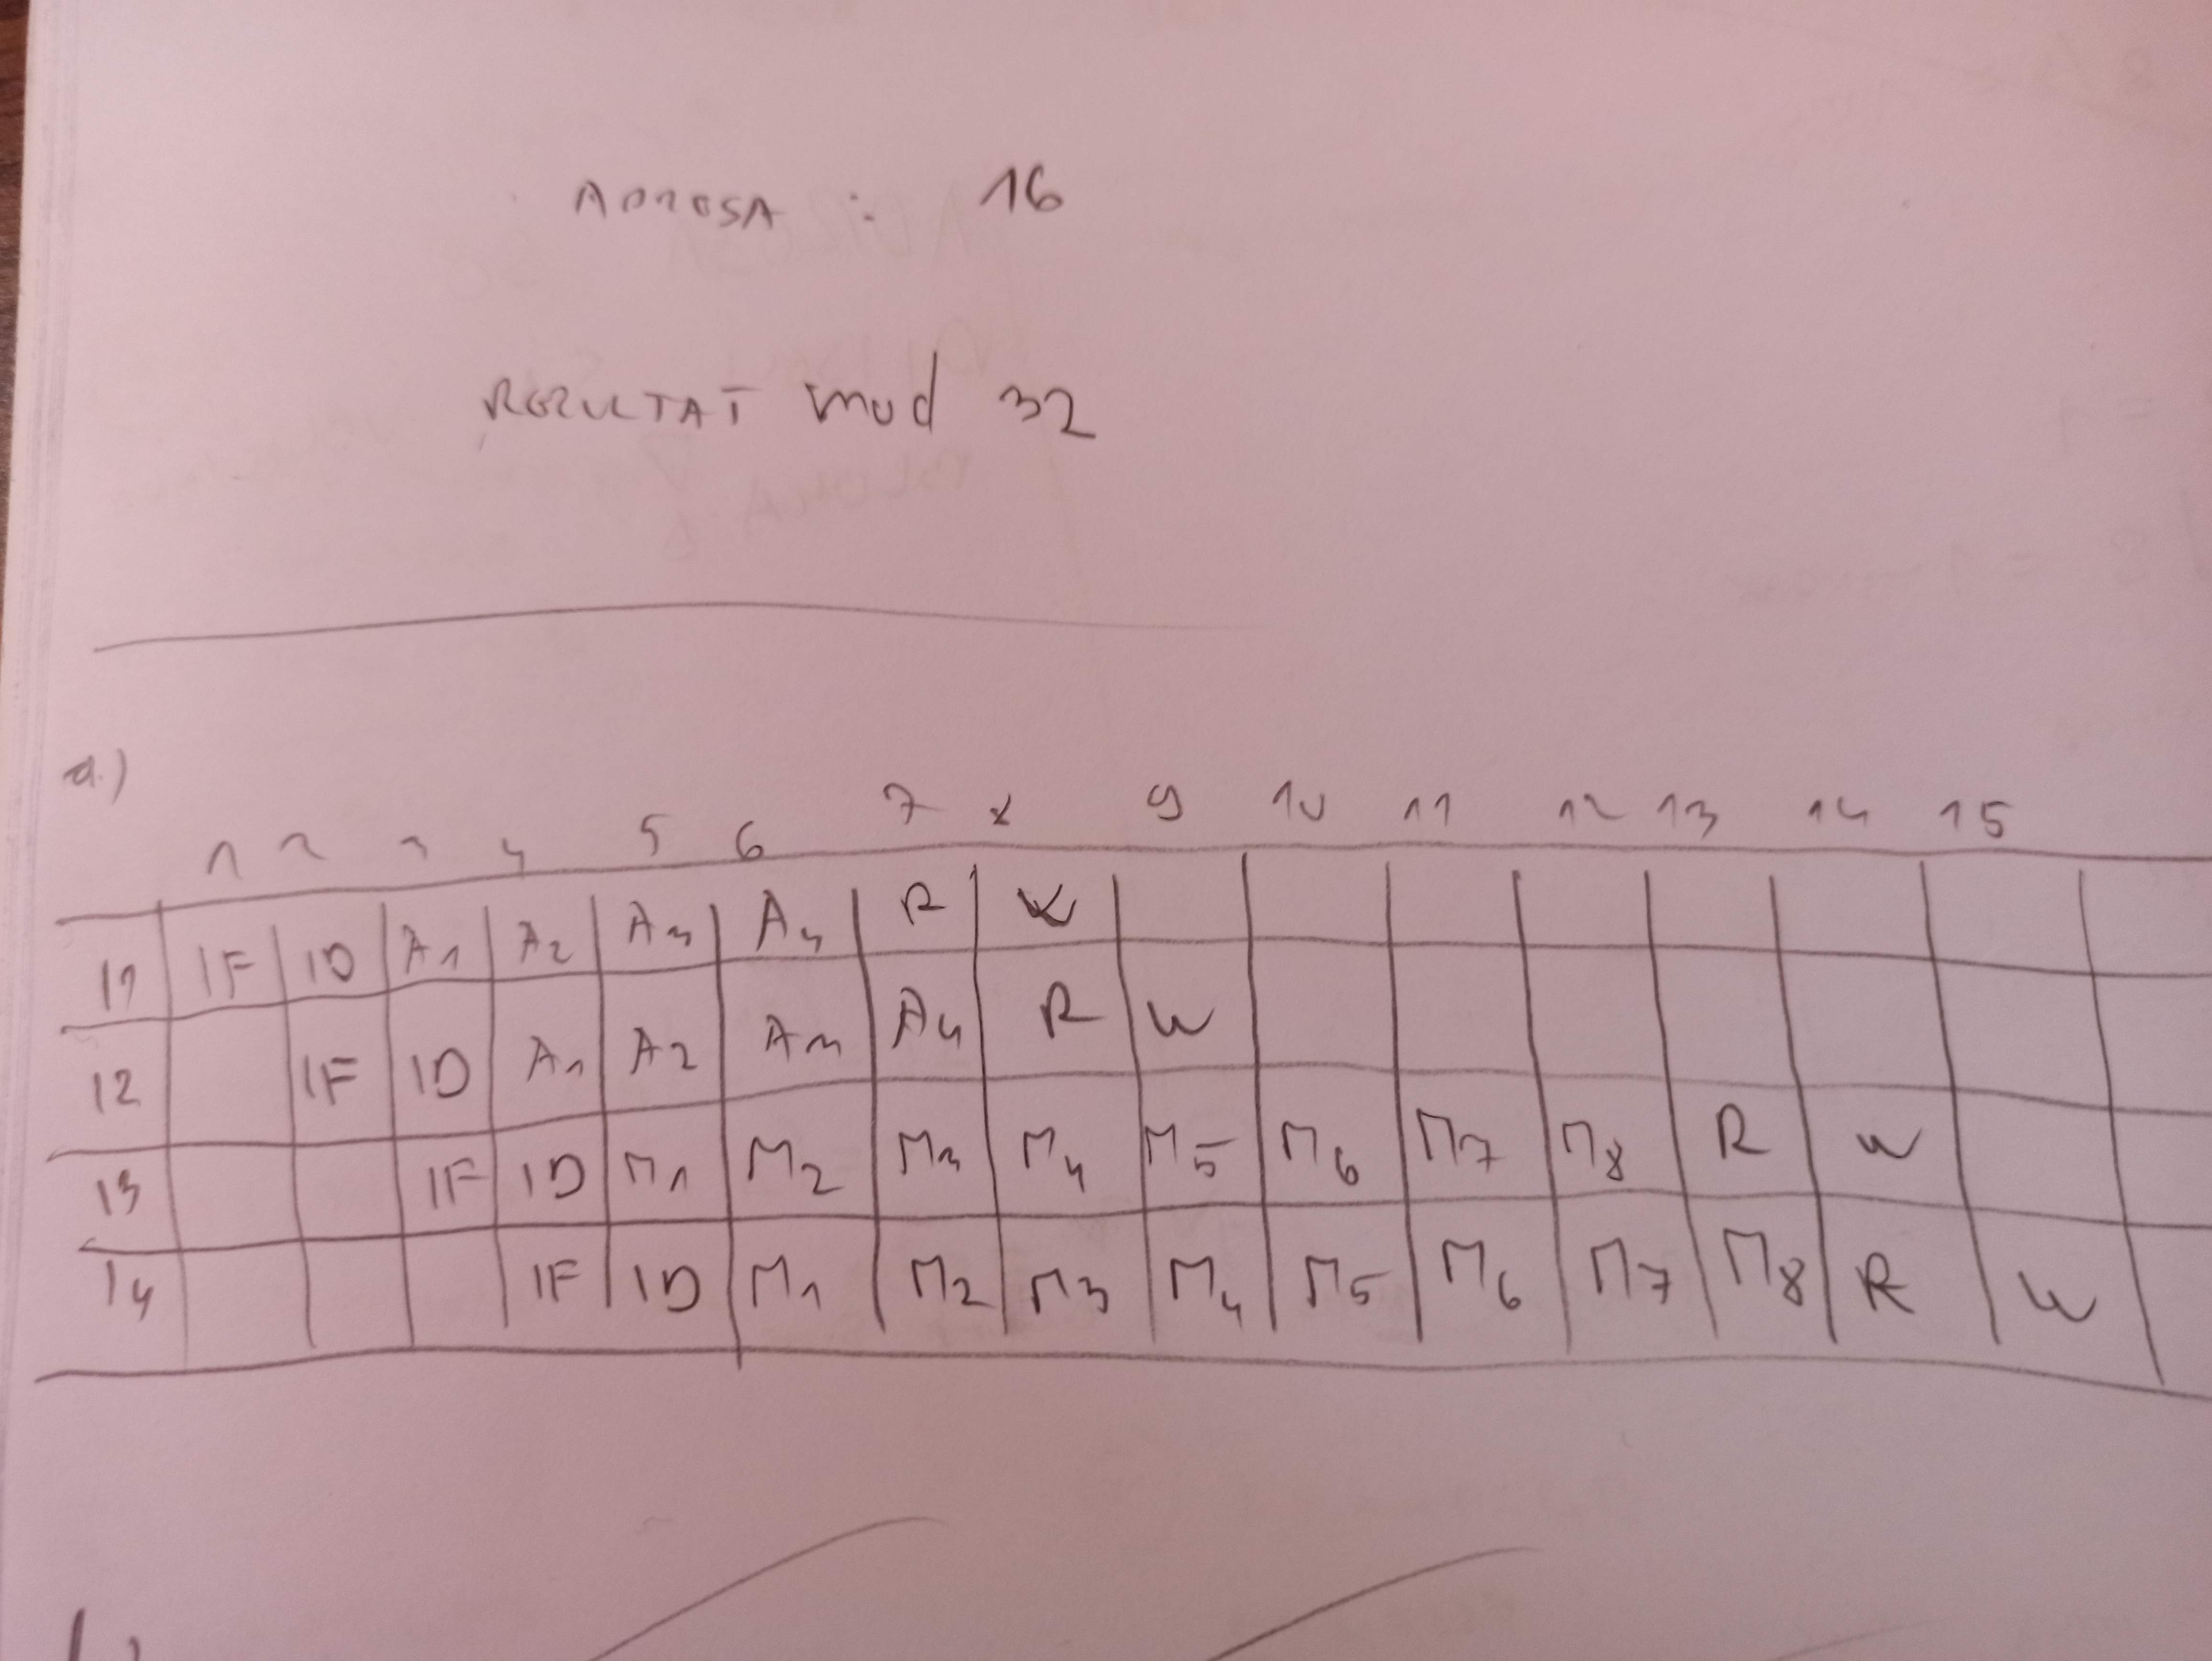 ADRESA : 16
REZULTAT mod 32
a.)
1 2 3 4 5 6 7 8 9 10 11 12 13 14 15
I1 IF ID A1 A2 A3 A4 R W
I2 IF ID A1 A2 A3 A4 R W
I3 IF ID M1 M2 M3 M4 M5 M6 M7 M8 R W
I4 IF ID M1 M2 M3 M4 M5 M6 M7 M8 R W